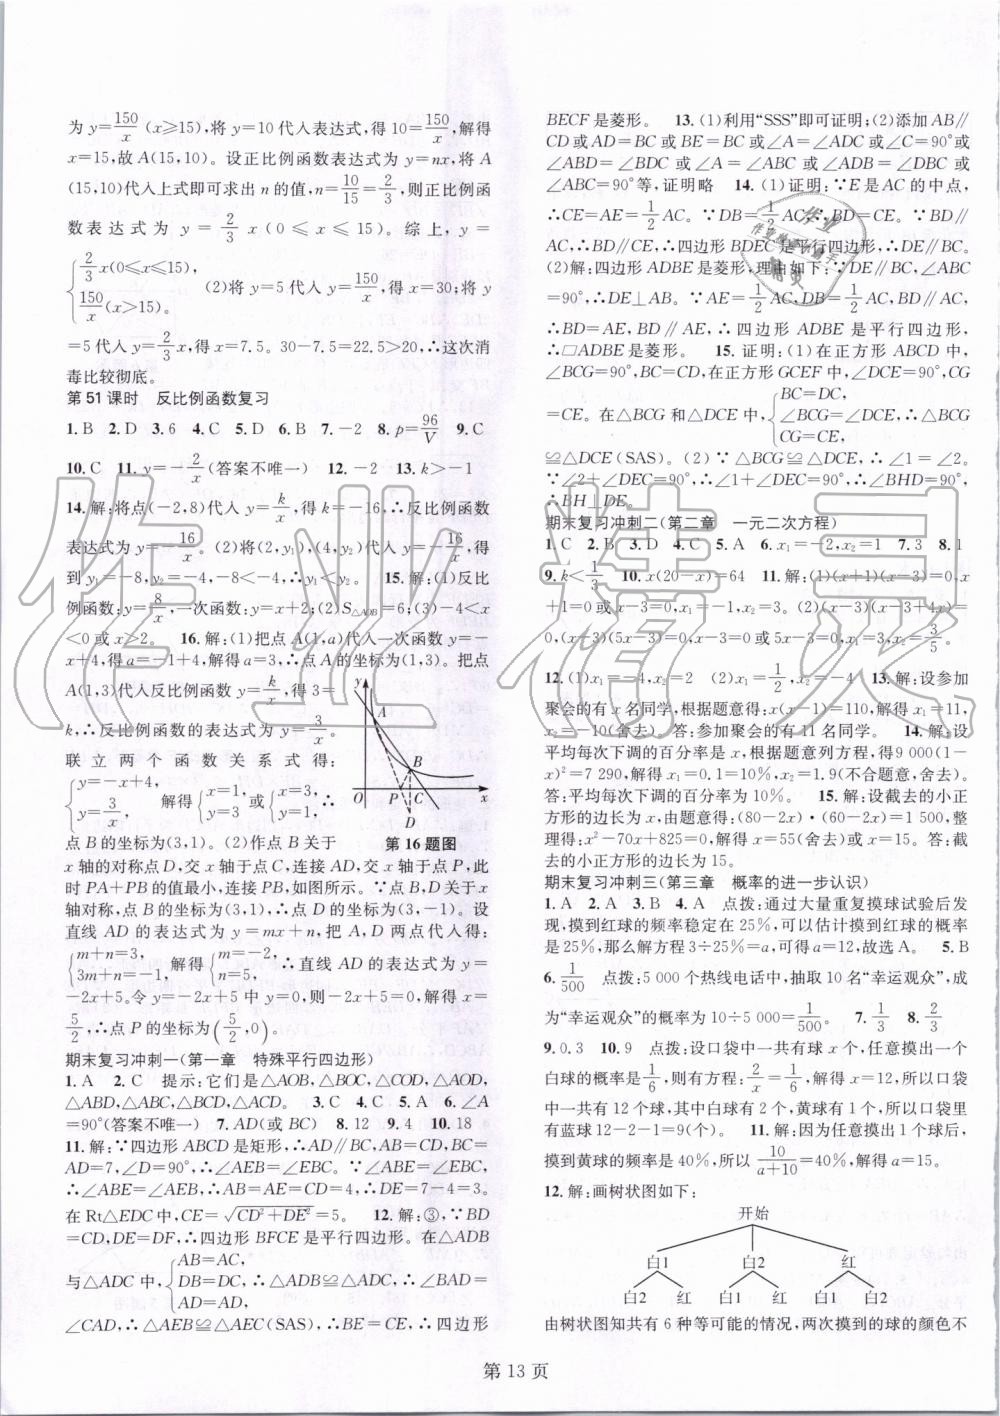 为 y=150/x (x⩾15),将 y=10 代入表达式,得 10=150/x,解得
x=15,故 A(15,10). 设正比例函数表达式为 y=nx,将 A
(15,10)代入上式即可求出 n 的值,n=10/15=2/3,则正比例函
数表达式为 y=2/3 x(0⩽x⩽15). 综上,y=
{2/3 x(0⩽x⩽15), 150/x (x>15). (2)将 y=5 代入 y=150/x,得 x=30;将 y
=5 代入 y=2/3 x,得 x=7.5. 30-7.5=22.5>20,∴这次消
毒比较彻底.
第 51 课时 反比例函数复习
1. B 2. D 3. 6 4. C 5. D 6. B 7. -2 8. p=96/V 9. C
10. C 11. y=-2/x(答案不唯一) 12. -2 13. k>-1
14. 解:将点(-2,8)代入 y=k/x,得 k=-16,∴反比例函数
表达式为 y=-16/x. (2)将(2,y₁),(4,y₂)代入 y=-16/x,得
到 y₁=-8,y₂=-4,∵-8<-4,∴y₁<y₂. 15. 解:(1)反比
例函数:y=8/x,一次函数:y=x+2;(2)S△AOB=6;(3)-4<x
<0 或 x>2. 16. 解:(1)把点 A(1,a)代入一次函数 y=-
x+4,得 a=-1+4,解得 a=3,∴点 A 的坐标为(1,3). 把点
A(1,3)代入反比例函数 y=k/x,得 3=
k,∴反比例函数的表达式为 y=3/x.
联立两个函数关系式得:
{y=-x+4, y=3/x, 解得{x=1, y=3 或{x=3, y=1,∴
点 B 的坐标为(3,1). (2)作点 B 关于
y
A
B
O
P
C
x
D
第 16 题图
x 轴的对称点 D,交 x 轴于点 C,连接 AD,交 x 轴于点 P,此
时 PA+PB 的值最小,连接 PB,如图所示. ∵点 B,D 关于 x
轴对称,点 B 的坐标为(3,1),∴点 D 的坐标为(3,-1). 设
直线 AD 的表达式为 y=mx+n,把 A,D 两点代入得:
{m+n=3, 3m+n=-1, 解得{m=-2, n=5,∴直线 AD 的表达式为 y=
-2x+5. 令 y=-2x+5 中 y=0,则 0=-2x+5,解得 x=
5/2,∴点 P 的坐标为(5/2,0).
期末复习冲刺一(第一章 特殊平行四边形)
1. A 2. C 提示:它们是△AOB,△BOC,△COD,△AOD,
△ABD,△ABC,△BCD,△ACD. 3. C 4. C 5. A 6. ∠A
=90°(答案不唯一) 7. AD(或 BC) 8. 12 9. 4 10. 18
11. 解:∵四边形 ABCD 是矩形,∴AD∥BC,AB=CD,BC=
AD=7,∠D=90°,∴∠AEB=∠EBC. ∵∠ABE=∠EBC,
∴∠ABE=∠AEB,∴AB=AE=CD=4,∴DE=7-4=3.
在 Rt△EDC 中,CE=√(CD²+DE²)=5. 12. 解:③,∵BD
=CD,DE=DF,∴四边形 BFCE 是平行四边形. 在△ADB
与△ADC 中,{AB=AC, DB=DC, AD=AD, ∴△ADB≌△ADC,∴∠BAD=
∠CAD,∴△AEB≌△AEC(SAS),∴BE=CE,∴四边形
BECF 是菱形. 13. (1)利用“SSS”即可证明;(2)添加 AB∥
CD 或 AD=BC 或 BE=BC 或∠A=∠ADC 或∠C=90°或
∠ABD=∠BDC 或∠A=∠ABC 或∠ADB=∠DBC 或
∠ABC=90°等,证明略 14. (1)证明:∵E 是 AC 的中点,
∴CE=AE=1/2 AC. ∵DB=1/2 AC,∴BD=CE. ∵BD∥
AC,∴BD∥CE,∴四边形 BDEC 是平行四边形,∴BC=DE.
(2)解:四边形 ADBE 是菱形,理由如下:∵DE∥BC,∠ABC
=90°,∴DE⊥AB. ∵AE=1/2 AC,DB=1/2 AC,∴AE=DB,
∴BD=AE,BD∥AE,∴四边形 ADBE 是平行四边形,
∴□ADBE 是菱形. 15. 证明:(1)在正方形 ABCD 中,
∠BCG=90°,BC=CD,在正方形 GCEF 中,∠DCE=90°,CG
=CE. 在△BCG 和△DCE 中,{BC=DC, ∠BCG=∠DCE, CG=CE, ∴△BCG
≌△DCE(SAS). (2)∵△BCG≌△DCE,∴∠1=∠2.
∵∠2+∠DEC=90°,∴∠1+∠DEC=90°,∴∠BHD=90°,
∴BH⊥DE.
期末复习冲刺二(第二章 一元二次方程)
1. C 2. B 3. D 4. C 5. A 6. x₁=-2,x₂=1 7. 3 8. 1
9. k<1/3 10. x(20-x)=64 11. 解:(1)(x+1)(x-3)=0,x
+1=0 或 x-3=0,x₁=-1,x₂=3. (2)(x-3)(x-3+4x)=
0,(x-3)(5x-3)=0,x-3=0 或 5x-3=0,x₁=3,x₂=3/5.
12. (1)x₁=-4,x₂=2 (2)x₁=1/2,x₂=-4 13. 解:设参加
聚会的有 x 名同学,根据题意得:x(x-1)=110,解得 x=11,
x=-10(舍去). 答:参加聚会的有 11 名同学. 14. 解:设
平均每次下调的百分率是 x,根据题意列方程,得 9 000(1-
x)²=7 290,解得 x₁=0.1=10%,x₂=1.9(不合题意,舍去).
答:平均每次下调的百分率为 10%. 15. 解:设截去的小正
方形的边长为 x,由题意得:(80-2x)·(60-2x)=1 500,整
理得:x²-70x+825=0,解得 x=55(舍去)或 x=15. 答:截
去的小正方形的边长为 15.
期末复习冲刺三(第三章 概率的进一步认识)
1. A 2. A 3. B 4. A 点拨:通过大量重复摸球试验后发
现,摸到红球的频率稳定在 25%,可以估计摸到红球的概率
是 25%,那么解方程 3÷25%=a,可得 a=12,故选 A. 5. B
6. 1/500 点拨:5 000 个热线电话中,抽取 10 名“幸运观众”,成
为“幸运观众”的概率为 10÷5 000=1/500. 7. 1/3 8. 2/3
9. 0.3 10. 9 点拨:设口袋中一共有球 x 个,任意摸出一个
白球的概率是 1/6,则有方程:2/x=1/6,解得 x=12,所以口袋
中一共有 12 个球,其中白球有 2 个,黄球有 1 个,所以口袋里
有蓝球 12-2-1=9(个). 11. 解:因为任意摸出 1 个球后,
摸到黄球的频率是 40%,所以 10/(a+10)=40%,解得 a=15.
12. 解:画树状图如下:
开始
白1 白2 红
白2 红 白1 红 白1 白2
由树状图知共有 6 种等可能的情况,两次摸到的球的颜色不
第 13 页
作业精灵